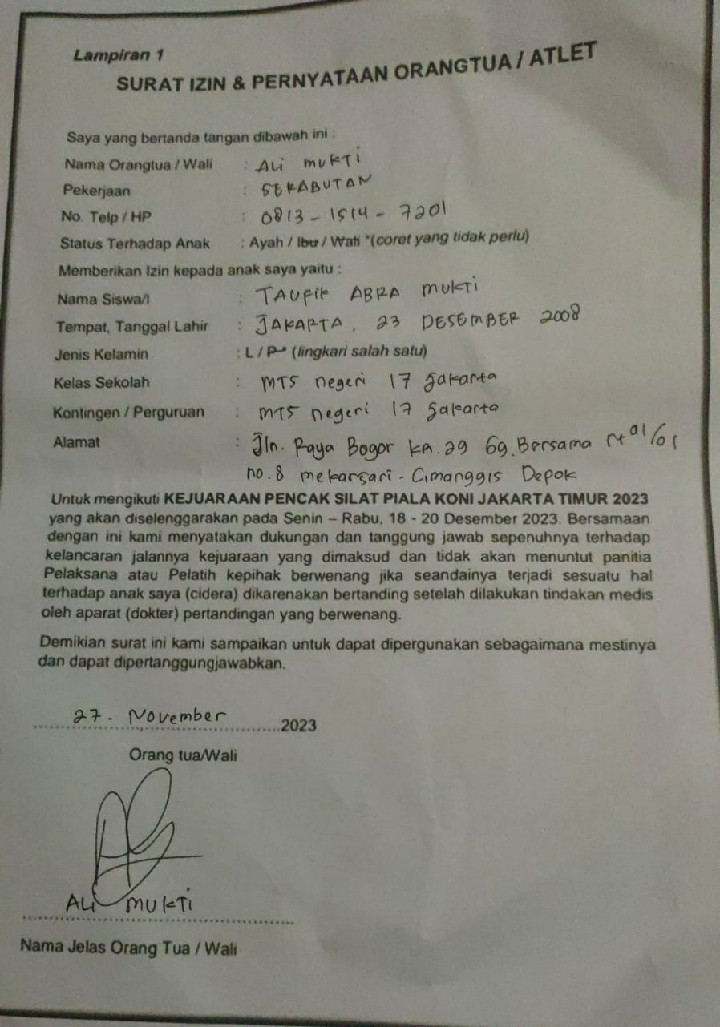 Lampiran 1
SURAT IZIN & PERNYATAAN ORANGTUA / ATLET
Saya yang bertanda tangan dibawah ini :
Nama Orangtua / Wali : ALi MUKTi
Pekerjaan : SERABUTAN
No. Telp / HP : 0813 - 1514 - 7201
Status Terhadap Anak : Ayah / Ibu / Wali *(coret yang tidak perlu)
Memberikan Izin kepada anak saya yaitu :
Nama Siswa/i : TAUFIK ABRA MUKTi
Tempat, Tanggal Lahir : JAKARTA, 23 DESEMBER 2008
Jenis Kelamin : L / P (lingkari salah satu)
Kelas Sekolah : MTS negeri 17 Jakarta
Kontingen / Perguruan : MTS negeri 17 Jakarta
Alamat : Jln. Raya Bogor km. 29 Gg. Bersama rt 01/01
no. 8 mekarsari - Cimanggis Depok
Untuk mengikuti KEJUARAAN PENCAK SILAT PIALA KONI JAKARTA TIMUR 2023
yang akan diselenggarakan pada Senin – Rabu, 18 - 20 Desember 2023. Bersamaan
dengan ini kami menyatakan dukungan dan tanggung jawab sepenuhnya terhadap
kelancaran jalannya kejuaraan yang dimaksud dan tidak akan menuntut panitia
Pelaksana atau Pelatih kepihak berwenang jika seandainya terjadi sesuatu hal
terhadap anak saya (cidera) dikarenakan bertanding setelah dilakukan tindakan medis
oleh aparat (dokter) pertandingan yang berwenang.
Demikian surat ini kami sampaikan untuk dapat dipergunakan sebagaimana mestinya
dan dapat dipertanggungjawabkan.
27. November 2023
Orang tua/Wali
ALi MUKTi
Nama Jelas Orang Tua / Wali